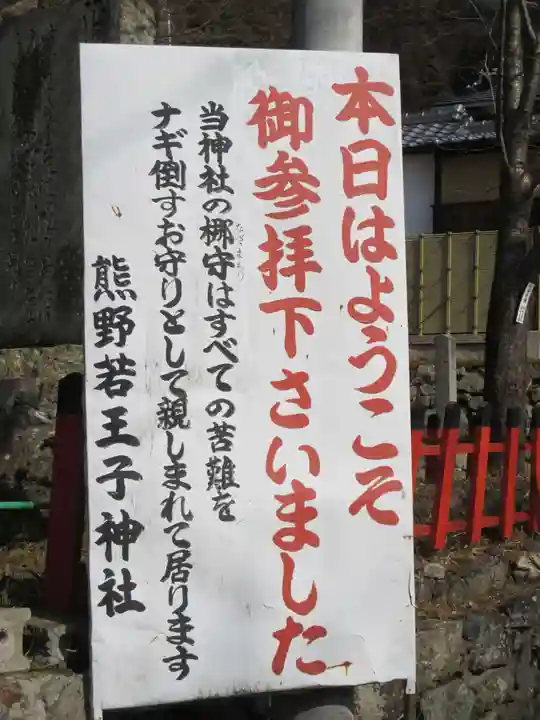 本日はようこそ
御参拝下さいました
当神社の梛守はすべての苦難を
ナギ倒すお守りとして親しまれて居ります
熊野若王子神社